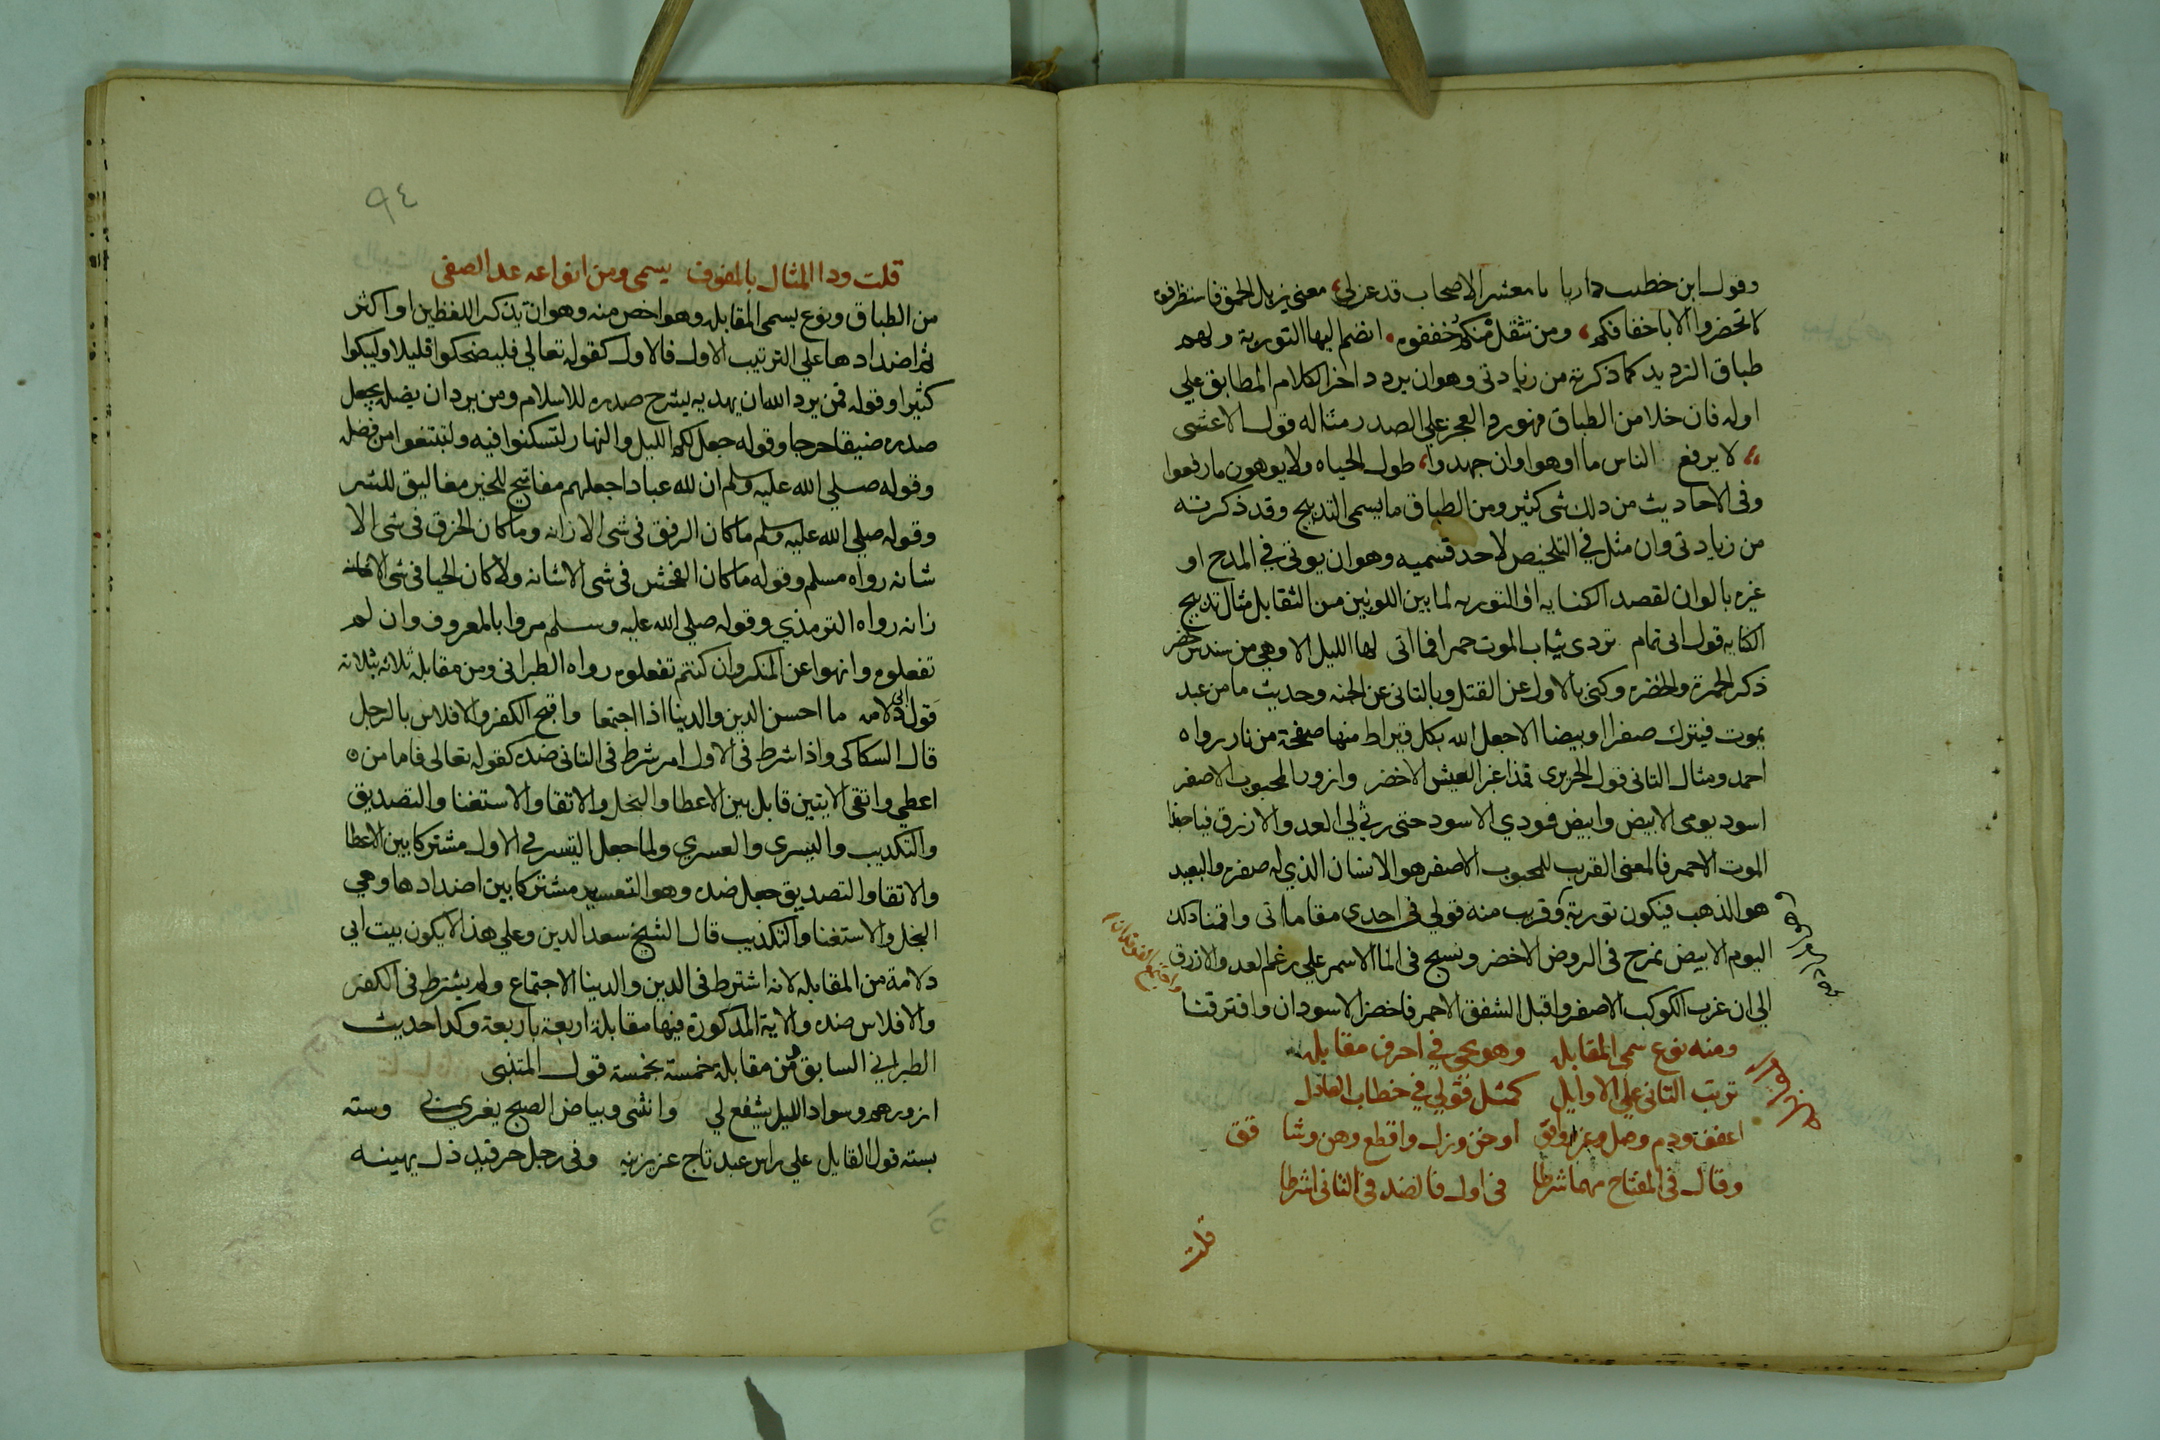 وقول ابن خطيب داريا يا معشر الاصحاب قد عن لي معنى يزيل الحمق فاستظرفوه
لا تحضروا الا باخفافكم ومن تثقل منكم خففوه انضم اليها التورية ولهم
طباق الترديد كما ذكرته من زيادتي وهو ان يردد اخر الكلام المطابق علي
اوله فان خلا من الطباق فهو رد العجز علي الصدر مثاله قول الاعشى
لا يرفع الناس ما اوهوا وان جهدوا طول الحياه ولا يوهون ما رفعوا
وفى الاحاديث من ذلك شى كثير ومن الطباق ما يسمى التدبيج وقد ذكرته
من زيادتى وان مثل في التلخيص لاحد قسميه وهو ان يوتى في المدح او
غيره بالوان لقصد الكنايه او التوريه لما بين اللونين من التقابل مثال تدبيج
الكنايه قول ابى تمام تردى ثياب الموت حمرا فما اتى لها الليل الا وهي من سندس خضر
ذكر الحمرة والخضره وكنى بالاول عن القتل وبالثانى عن الجنه وحديث ما من عبد
يموت فيترك صفرا او بيضا الا جعل الله بكل قيراط منها صفحة من نار رواه
احمد ومثال الثانى قول الحريرى فمذ اغبر العيش الاخضر وازور المحبوب الاصفر
اسود يومى الابيض وابيض فودي الاسود حتى رثى لي العدو الازرق فيا حبذا
الموت الاحمر فالمعنى القريب للمحبوب الاصفر هو الانسان الذي له صفره والبعيد
هو الذهب فيكون تورية وقريب منه قولي فى احدى مقاماتى واقمنا ذلك
اليوم الابيض نمرح فى الروض الاخضر ونسبح فى الما الاسمر علي رغم العدو الازرق
الي ان غرب الكوكب الاصفر واقبل الشفق الاحمر فاخضر الاسودان وافترقنا
ومنه نوع سمى المقابله وهو يجى في احرف مقابله
ترتب الثانى علي الاوايل كمثل قولي في خطاب العاذل
اعفف ودم وصل وعز وافق او خن وزل واقطع وهن وشاقق
وقال فى المفتاح مهما شرطا فى اول فالضد فى الثانى اشرطا
قلت
٩٤
قلت وذا المثال بالمفوف يسمى ومن انواعه عد الصفى
من الطباق ونوع يسمى المقابله وهو اخص منه وهو ان يذكر اللفظين او اكثر
ثم اضدادها علي الترتيب الاول فالاول كقوله تعالي فليضحكوا قليلا وليبكوا
كثيرا وقوله فمن يرد الله ان يهديه يشرح صدره للاسلام ومن يرد ان يضله يجعل
صدره ضيقا حرجا وقوله جعل لكم الليل والنهار لتسكنوا فيه ولتبتغوا من فضله
وقوله صلي الله عليه وسلم ان لله عبادا جعلهم مفاتيح للخير مغاليق للشر
وقوله صلي الله عليه وسلم ما كان الرفق فى شى الا زانه وما كان الخرق فى شى الا
شانه رواه مسلم وقوله ما كان الفحش فى شى الا شانه ولا كان الحيا فى شى الا
زانه رواه الترمذي وقوله صلي الله عليه وسلم مروا بالمعروف وان لم
تفعلوه وانهوا عن المنكر وان كنتم تفعلوه رواه الطبرانى ومن مقابلة ثلاثه بثلاثه
قول ابى دلامه ما احسن الدين والدنيا اذا اجتمعا واقبح الكفر والافلاس بالرجل
قال السكاكى واذا شرط فى الاول امر شرط فى الثانى ضده كقوله تعالى فاما من
اعطي واتقى الايتين قابل بين الاعطا والبخل والاتقا والاستغنا والتصديق
والتكذيب واليسرى والعسري ولما جعل التيسر في الاول مشتركا بين الاعطا
والاتقا والتصديق جعل ضده وهو التعسير مشتركا بين اضدادها وهي
البخل والاستغنا والتكذيب قال الشيخ سعد الدين وعلي هذا لا يكون بيت ابي
دلامة من المقابله لانه اشترط فى الدين والدنيا الاجتماع ولم يشترط فى الكفر
والافلاس ضده والاية المذكورة فيها مقابلة اربعة باربعة وكذا حديث
الطبراني السابق ومن مقابلة خمسة بخمسة قول المتنبى
ازورهم وسواد الليل يشفع لي وانثنى وبياض الصبح يغري بي وسته
بسته قول القايل علي راس عبد تاج عز يزينه وفى رجل حر قيد ذل يهينه